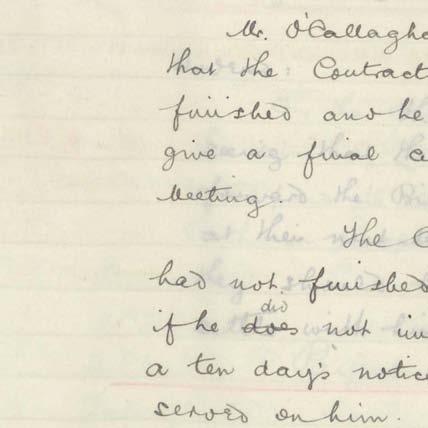 Mr. O'Callagh
that the Contract
finished and he
give a final
Meeting.
The
had not finished
if he ~~does~~ did not
a ten day's notice
served on him.